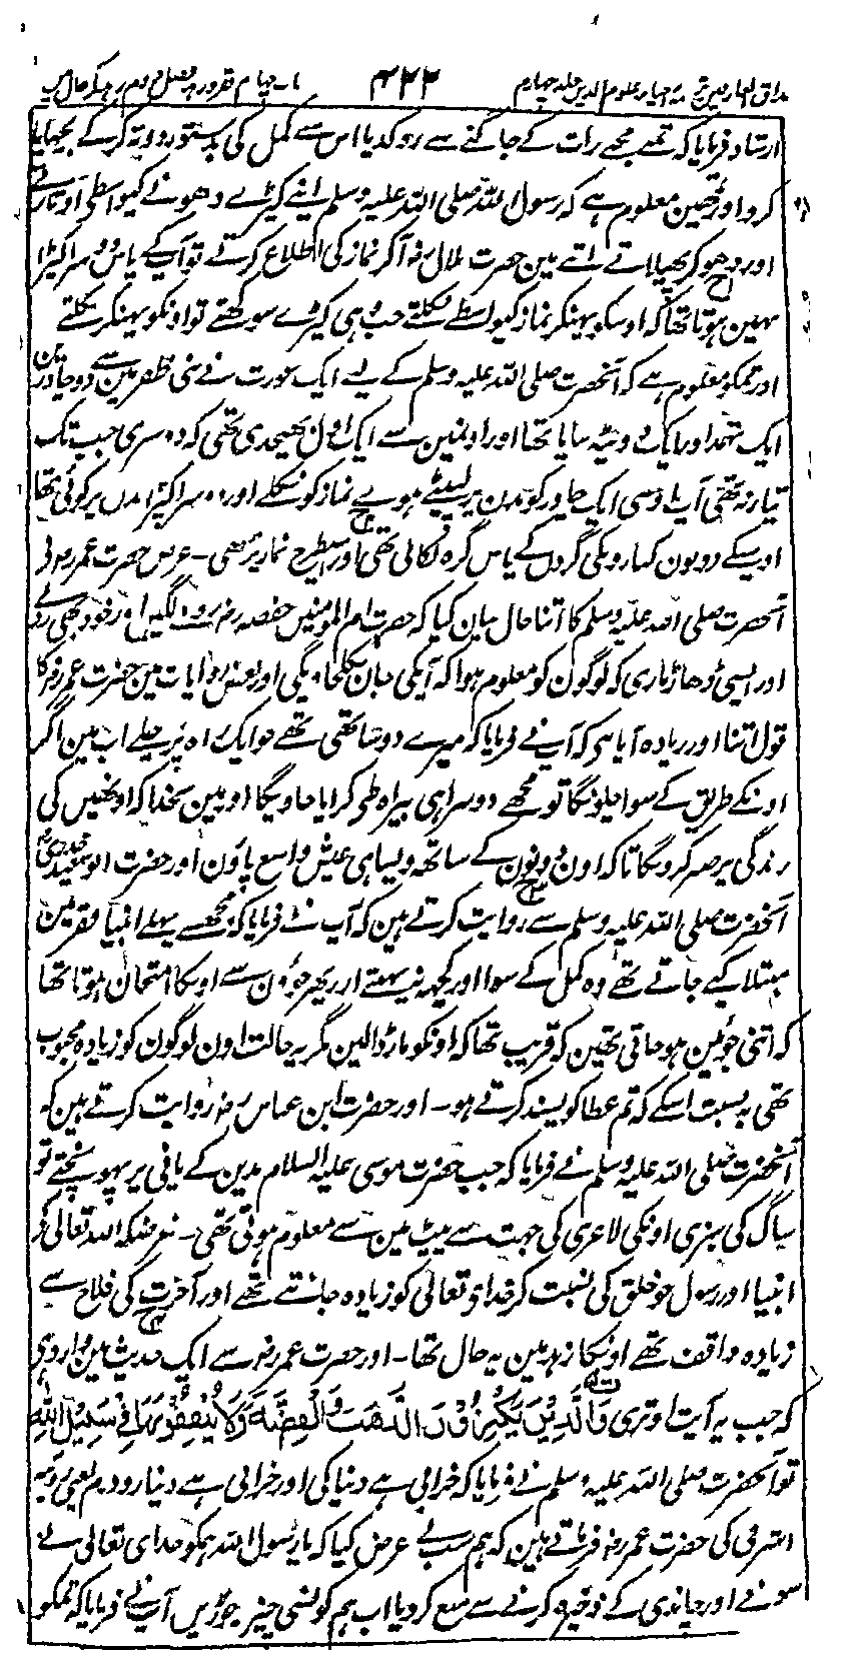 مذاق العارفین ترجمہ احیاء علوم الدین جلد چہارم ۴۲۲ باب چہارم فقر و زہد فصل دوم زہد کے حال میں
ارشاد فرمایا کہ تمنے مجھے رات کے جاگنے سے روکدیا اس سے کمل کی بدستور دوتہ کرکے بچھایا
کرو اور تمھین معلوم ہے کہ رسول اللہ صلی اللہ علیہ وسلم اپنے کپڑے دھونے کیواسطے اوتارتے
اور دھو کر پھیلاتے اتنے مین حضرت بلال رضہ آکر نماز کی اطلاع کرتے تو آپکے پاس دوسرا کپڑا
نہین ہوتا تھا کہ اوسکو پہنکر نماز کیواسطے نکلتے جب وہی کپڑے سوکھتے تو اونکو پہنکر نکلتے
اور تمکو معلوم ہے کہ آنحضرت صلی اللہ علیہ وسلم کے لیے ایک عورت نے بنی ظفر مین سے دو چادرین
ایک تہمد اور ایک دوپٹہ بنایا تھا اور اونمین سے ایک اول بھیجدی تھی کہ دوسری جب تک
تیار نہ تھی آپ اوسی ایک چادر کو بدن پر لپیٹے ہوے نماز کو نکلے اور دوسرا کپڑا بدن پر کوئی نہ تھا
اوسکے دونون کنارونکی گردن کے پاس گرہ لگالی تھی اور اسیطرح نماز پڑھی - غرض حضرت عمر رضہ نے
آنحضرت صلی اللہ علیہ وسلم کا اتنا حال بیان کیا کہ حضرت ام المومنین حفصہ رضہ رونے لگین اور خود بھی روئے
اور ایسی ڈھاڑ ماری کہ لوگون کو معلوم ہوا کہ آپکی جان نکلجاویگی اور بعض روایات مین حضرت عمر رضہ کا
قول اتنا اور زیادہ آیا ہی کہ آپ نے فرمایا کہ میرے دو ساتھی تھے جو ایک راہ پر چلے اب مین اگر
اونکے طریق کے سوا چلونگا تو مجھے دوسرا ہی بیراہ طی کرایا جاویگا اور مین بخدا کہ اونھین کی
زندگی پر صبر کرونگا تاکہ اون دونون کے ساتھ ویسا ہی عیش واسع پاؤن اور حضرت ابو سعید خدری رضہ
آنحضرت صلی اللہ علیہ وسلم سے روایت کرتے ہین کہ آپ نے فرمایا کہ مجھسے پہلے انبیا فقر مین
مبتلا کیے جاتے تھے وہ کمل کے سوا اور کچھ نہ پہنتے اور پھر جوؤن سے اونکا امتحان ہوتا تھا
کہ اتنی جوئین ہو جاتی تھین کہ قریب تھا کہ اونکو مار ڈالین مگر یہ حالت اون لوگون کو زیادہ محبوب
تھی بہ نسبت اسکے کہ تم عطا کو پسند کرتے ہو - اور حضرت ابن عباس رضہ روایت کرتے ہین کہ
آنحضرت صلی اللہ علیہ وسلم نے فرمایا کہ جب حضرت موسی علیہ السلام مدین کے پانی پر پہونچتے تو
ساگ کی سبزی اونکی لاغری کی جہت سے پیٹ مین سے معلوم ہوتی تھی - غرضکہ اللہ تعالی کے
انبیا اور رسول جو خلق کی نسبت کر خدای تعالی کو زیادہ جانتے تھے اور آخرت کی فلاح سے
زیادہ واقف تھے اونکا زہد مین یہ حال تھا - اور حضرت عمر رضہ سے ایک حدیث مین وارد ہی
کہ جب یہ آیت اوتری وَالَّذِيْنَ يَكْنِزُوْنَ الذَّهَبَ وَالْفِضَّةَ وَلَا يُنْفِقُوْنَهَا فِيْ سَبِيْلِ اللّٰهِ
تو آنحضرت صلی اللہ علیہ وسلم نے فرمایا کہ خرابی ہے دنیا کی اور خرابی ہے دینار و درم یعنی روپیہ
اشرفی کی حضرت عمر رضہ فرماتے ہین کہ ہم سب نے عرض کیا کہ یا رسول اللہ ہمکو خدای تعالی نے
سونے اور چاندی کے ذخیرہ کرنے سے منع کردیا اب ہم کونسی چیز جوڑیں آپ نے فرمایا کہ تمکو